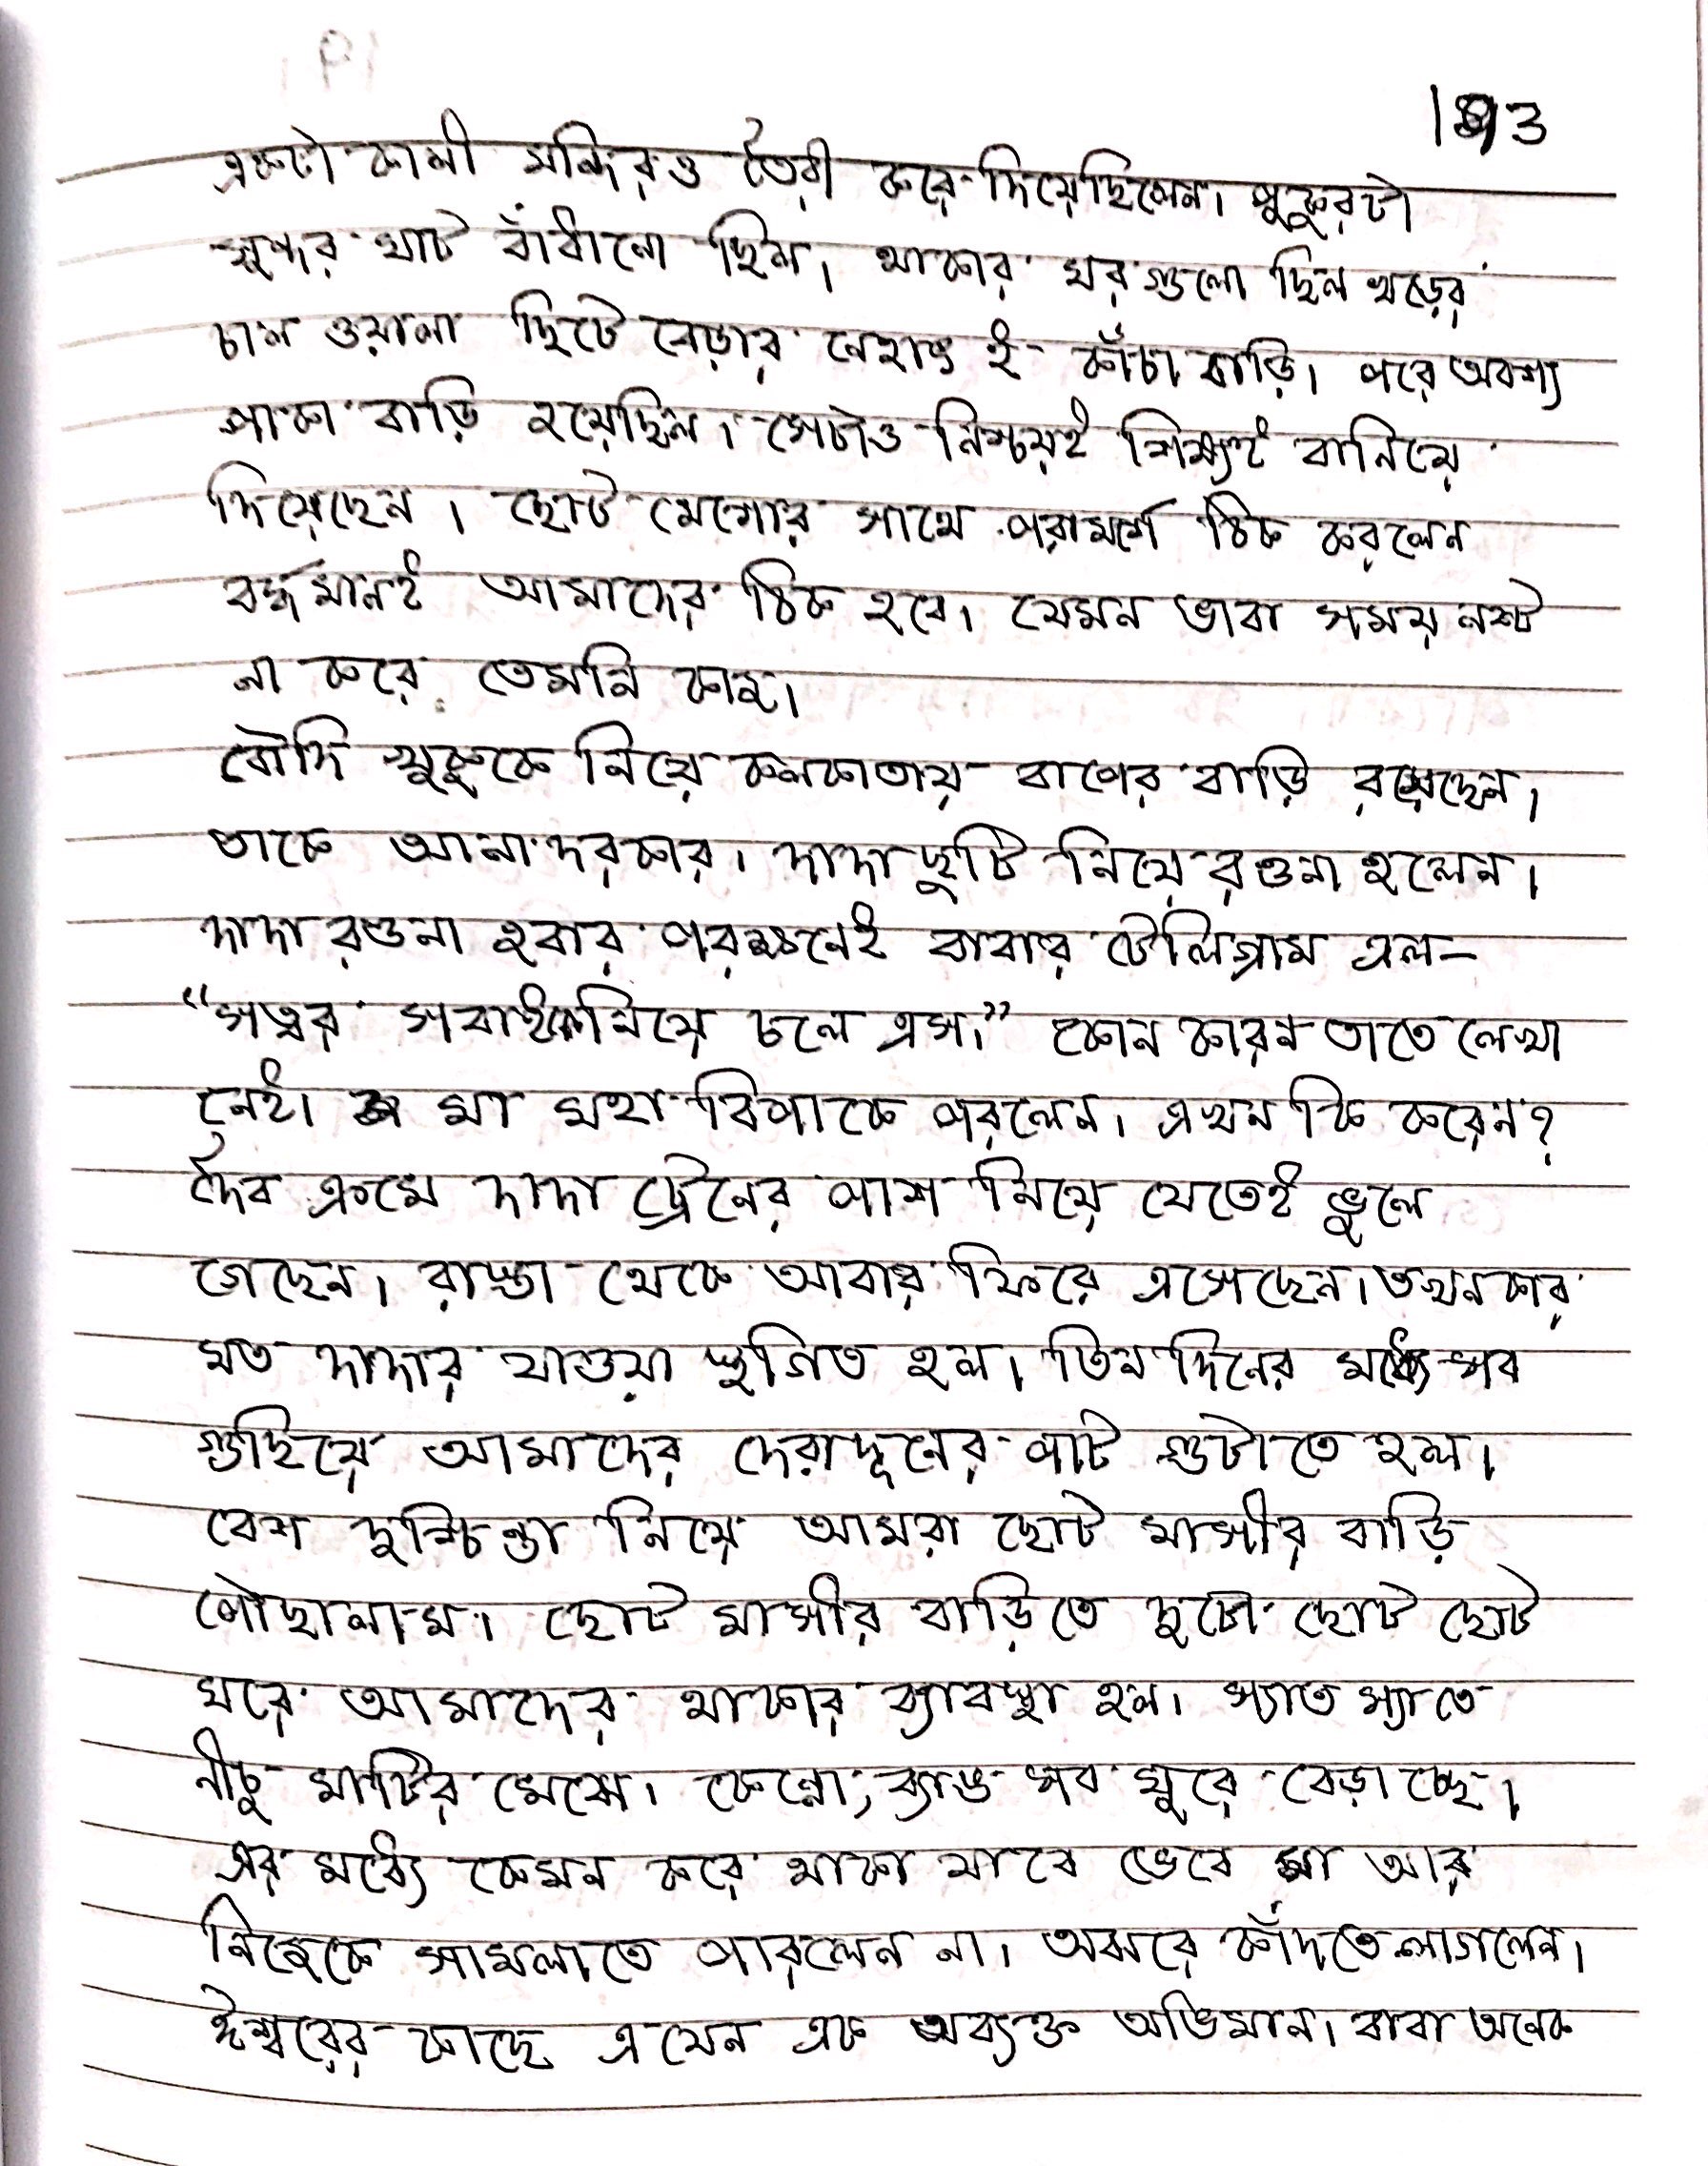 193
একটা কালী মন্দিরও তৈরী করে দিয়েছিলেন। পুকুরটা
সুন্দর ঘাট বাঁধানো ছিল। থাকার ঘর গুলো ছিল খড়ের
চাল ওয়ালা ছিটে বেড়ার নেহাৎ ই কাঁচা বাড়ি। পরে অবশ্য
পাকা বাড়ি হয়েছিল। সেটাও নিশ্চয়ই শিষ্যই বানিয়ে
দিয়েছেন। ছোট মেশোর সাথে পরামর্শে ঠিক করলেন
বর্দ্ধমানই আমাদের ঠিক হবে। যেমন ভাবা সময় নষ্ট
না করে তেমনি কাজ।
বৌদি খুকুকে নিয়ে কলকাতায় বাপের বাড়ি রয়েছেন।
তাকে আনা দরকার। দাদা ছুটি নিয়ে রওনা হলেন।
দাদা রওনা হবার পরক্ষনেই বাবার টেলিগ্রাম এল–
“সত্বর সবাইকে নিয়ে চলে এস।” কোন কারন তাতে লেখা
নেই। মা মহা বিপাকে পরলেন। এখন কি করেন?
দৈব ক্রমে দাদা ট্রেনের পাশ নিয়ে যেতেই ভুলে
গেছেন। রাস্তা থেকে আবার ফিরে এসেছেন। তখনকার
মত দাদার যাওয়া স্থগিত হল। তিন দিনের মধ্যে সব
গুছিয়ে আমাদের দেরাদূনের পাট গুটাতে হল।
বেশ দুশ্চিন্তা নিয়ে আমরা ছোট মাসীর বাড়ি
পৌছালাম। ছোট মাসীর বাড়িতে দুটো ছোট ছোট
ঘরে আমাদের থাকার ব্যাবস্থা হল। স্যাত স্যাতে
নীচু মাটির মেঝে। কেন্নো, ব্যাঙ সব ঘুরে বেড়াচ্ছে।
এর মধ্যে কেমন করে থাকা যাবে ভেবে মা আর
নিজেকে সামলাতে পারলেন না। অঝরে কাঁদতে লাগলেন।
ঈশ্বরের কাছে এ যেন এক অব্যক্ত অভিমান। বাবা অনেক